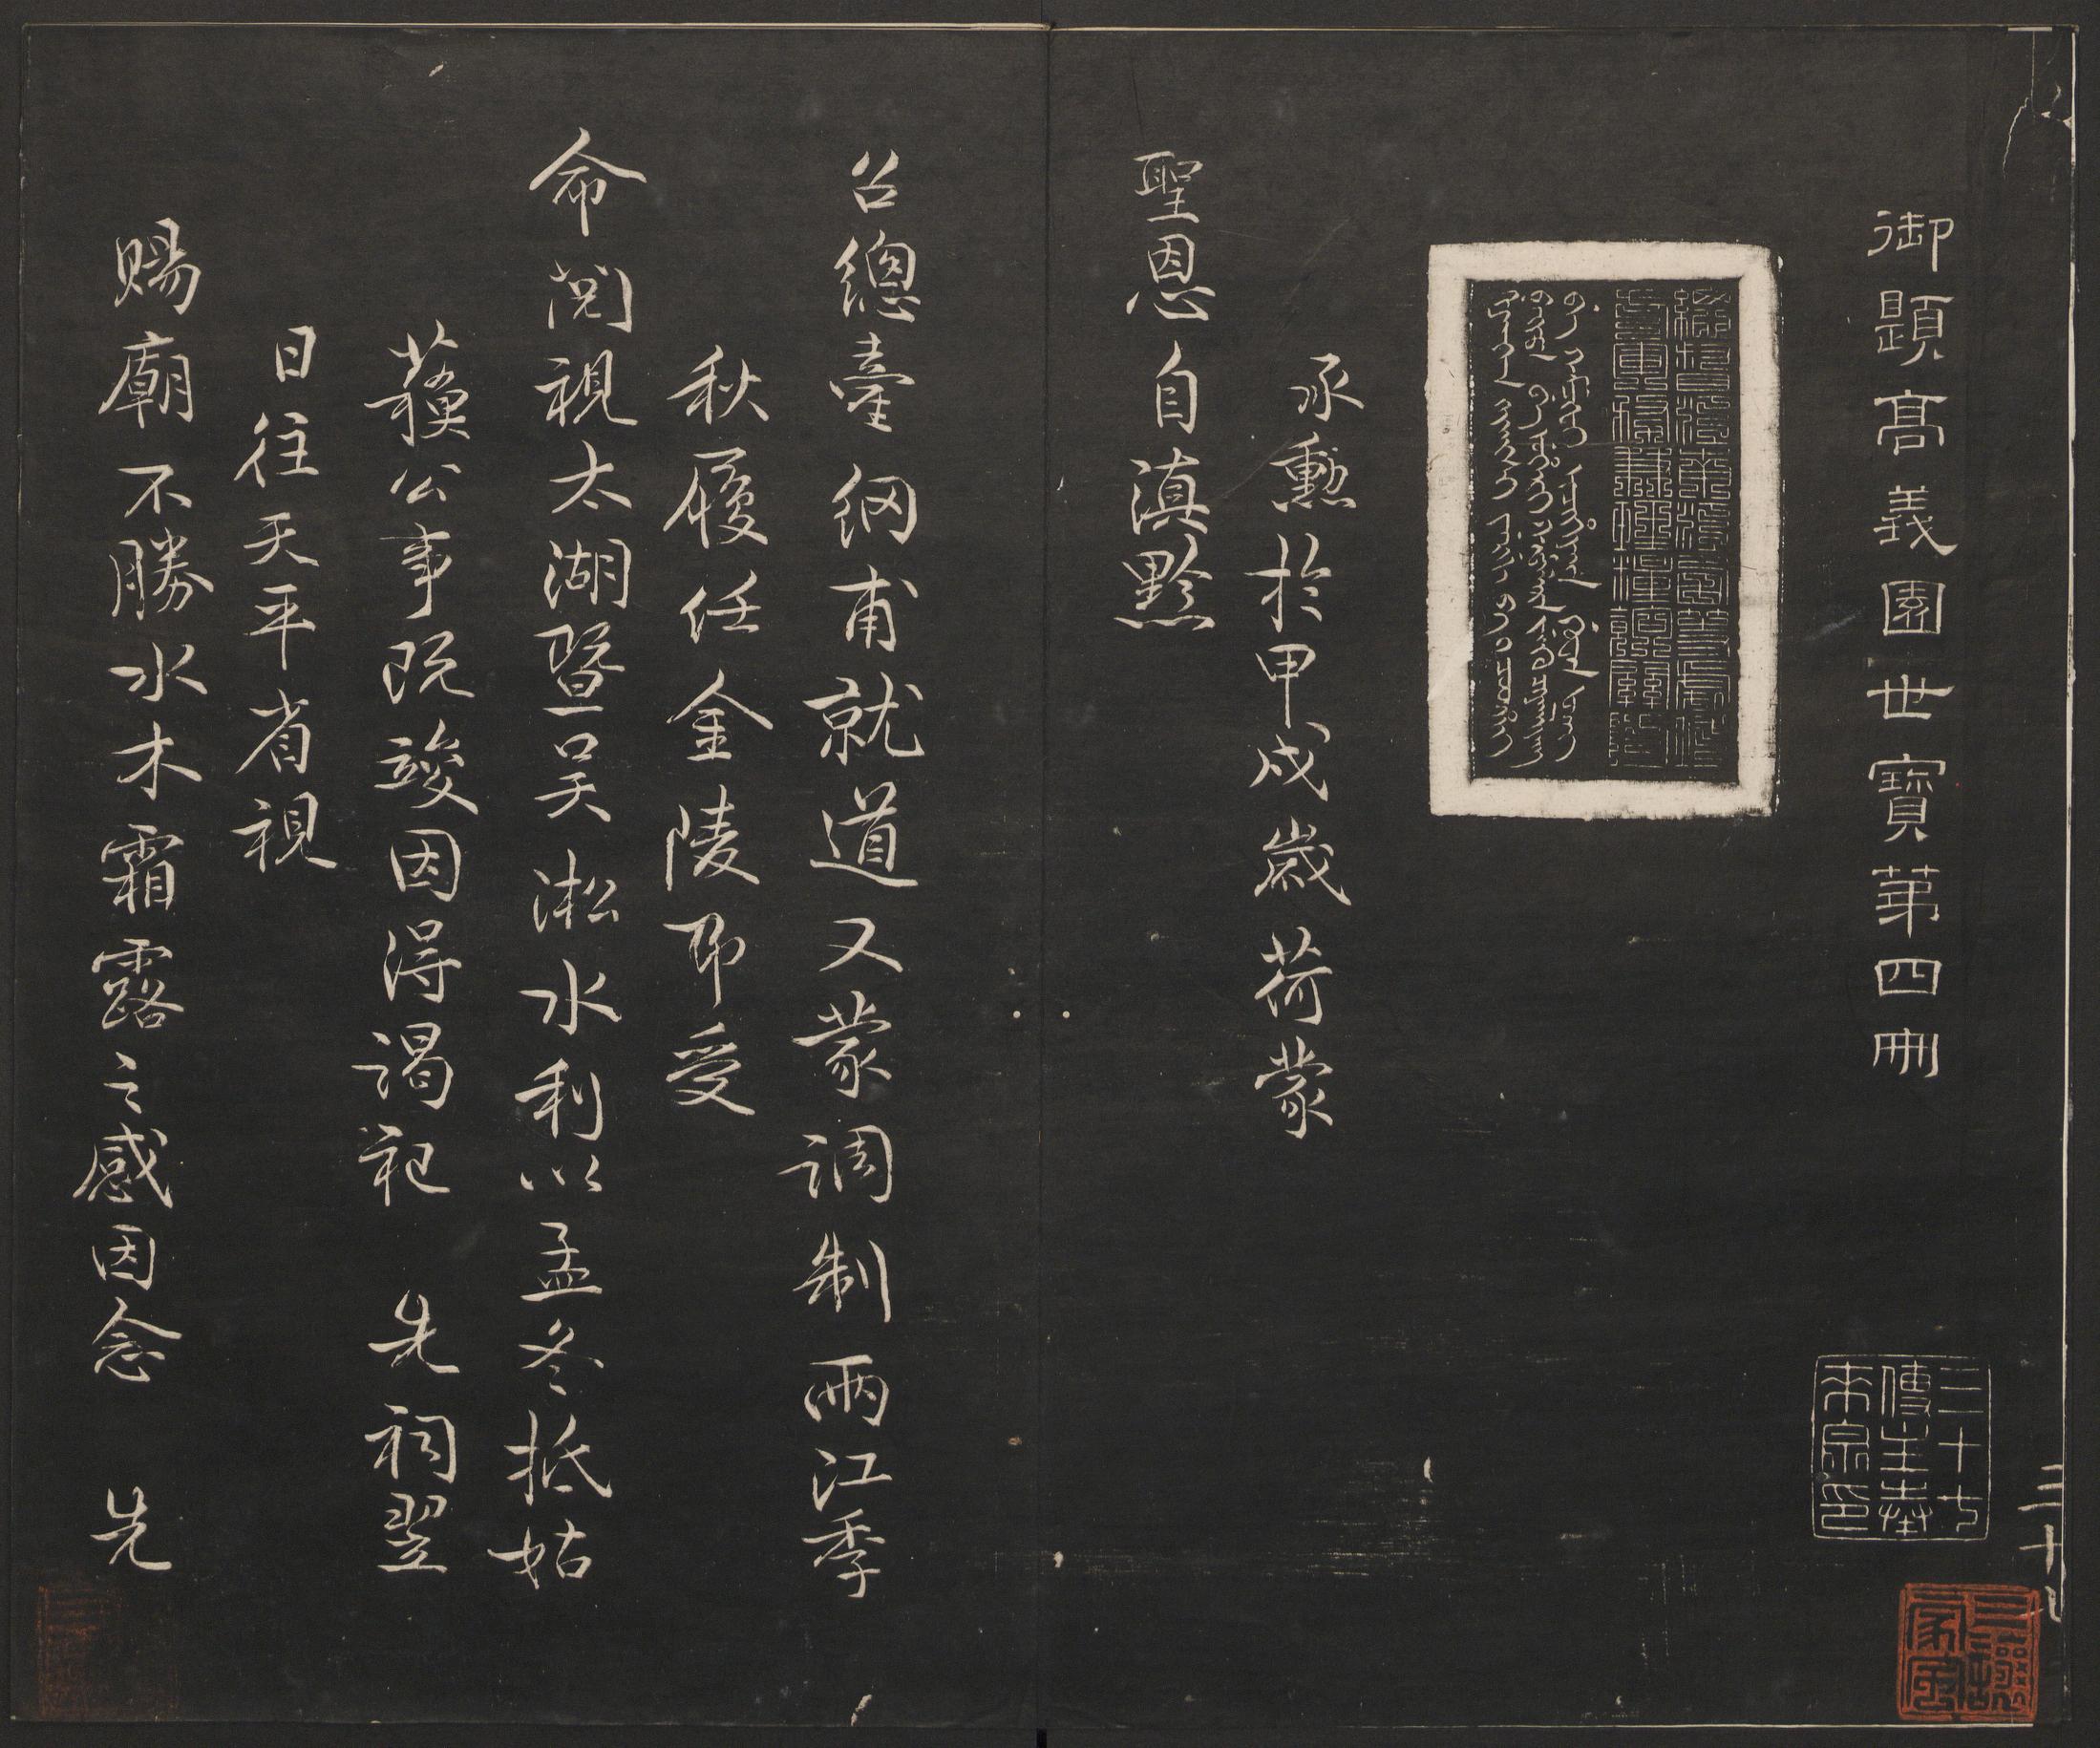 御題高義園世寶第四冊
三十七
傳主奉
來宗印
承勳於甲戌歲荷蒙
聖恩自滇黔
召總臺綱甫就道又蒙調制兩江季
秋履任金陵即受
命閱視太湖暨吴淞水利以孟冬抵姑
蘓公事既竣因得謁祀 先祠翌
日往天平省視
賜廟不勝水木霜露之感因念 先
三十七